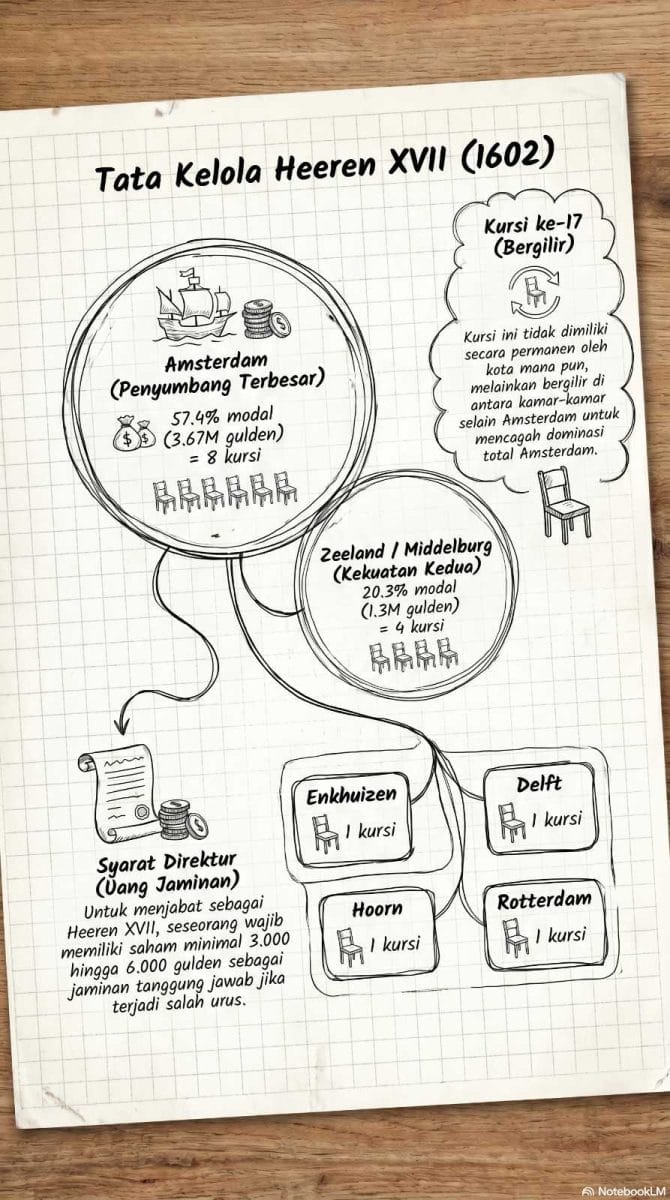 Tata Kelola Heeren XVII (1602)
Kursi ke-17
(Bergilir)
Kursi ini tidak dimiliki
secara permanen oleh
kota mana pun,
melainkan bergilir di
antara kamar-kamar
selain Amsterdam untuk
mencagah dominasi
total Amsterdam.
Amsterdam
(Penyumbang Terbesar)
$ $
57.4% modal
(3.67M gulden)
= 8 kursi
Zeeland / Middelburg
(Kekuatan Kedua)
20.3% modal
(1.3M gulden)
= 4 kursi
Syarat Direktur
(Uang Jaminan)
Untuk menjabat sebagai
Heeren XVII, seseorang wajib
memiliki saham minimal 3.000
hingga 6.000 gulden sebagai
jaminan tanggung jawab jika
terjadi salah urus.
Enkhuizen
1 kursi
Delft
1 kursi
Hoorn
1 kursi
Rotterdam
1 kursi
NotebookLM